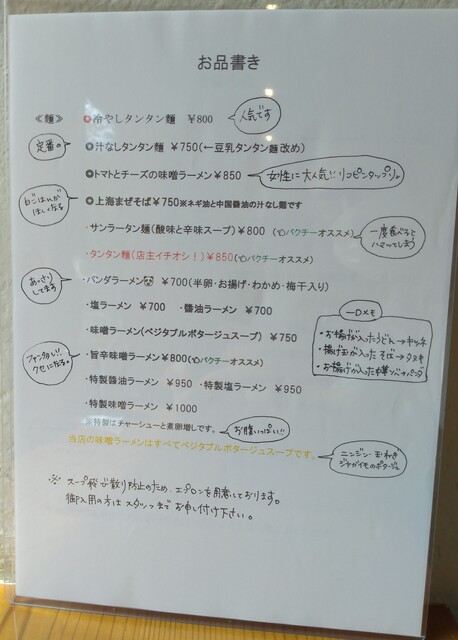 お品書き
≪麺≫ ◎冷やしタンタン麺 ￥800 人気です
定番の ◎汁なしタンタン麺 ￥750(←豆乳タンタン麺改め)
◎トマトとチーズの味噌ラーメン￥850 女性に大人気!!リコピンタップリ♪
白ごはんが ほしくなる
◎上海まぜそば￥750※ネギ油と中国醤油の汁なし麺です
・サンラータン麺(酸味と辛味スープ)￥800 (パクチーオススメ) 一度食べると ハマッてしまう
・タンタン麺(店主イチオシ！)￥850(パクチーオススメ)
あっさり してます
・パンダラーメン ￥700(半卵・お揚げ・わかめ・梅干入り)
・塩ラーメン ￥700 ・醤油ラーメン ￥700
・味噌ラーメン(ベジタブルポタージュスープ) ￥750
一口メモ
・お揚げが入ったうどん→キツネ
・揚げ玉が入ったそば→タヌキ
・お揚げが入った中華ソバ→パンダ
ファン多し!! クセになる。
・旨辛味噌ラーメン￥800(パクチーオススメ)
・特製醤油ラーメン ￥950 ・特製塩ラーメン ￥950
・特製味噌ラーメン ￥1000
※特製はチャーシューと煮卵増しです。 お腹いっぱい!!
当店の味噌ラーメンはすべてベジタブルポタージュスープです。
ニンジン・玉ねぎ ジャガイモのポタージュ
※ スープ飛び散り防止のため、エプロンを用意しております。
御入用の方はスタッフまでお申し付け下さい。